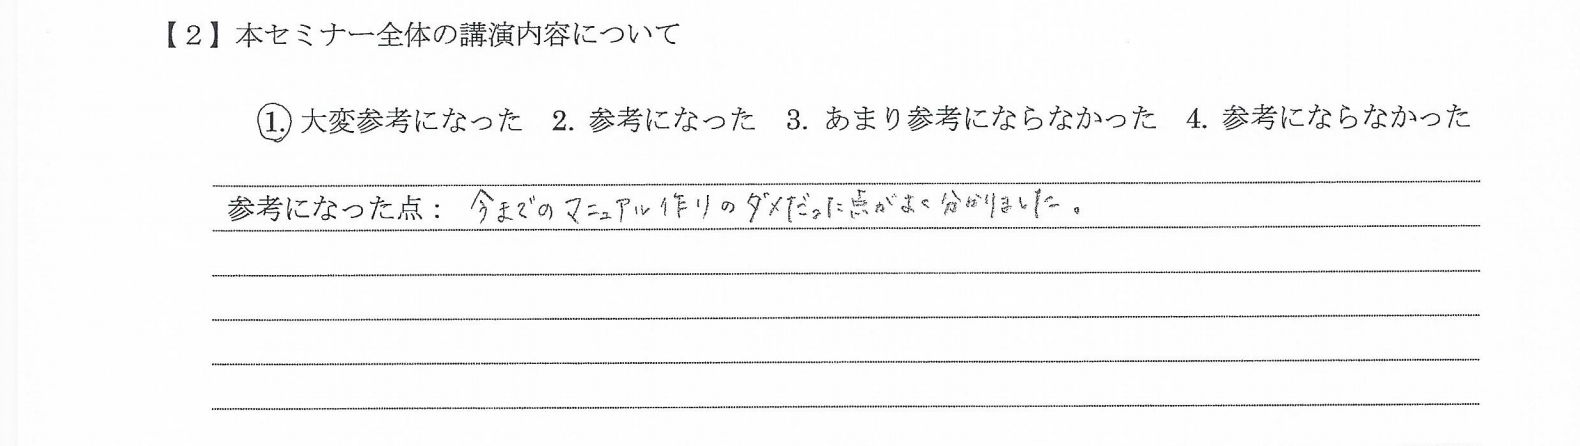 【２】本セミナー全体の講演内容について
1. 大変参考になった 2. 参考になった 3. あまり参考にならなかった 4. 参考にならなかった
参考になった点： 今までのマニュアル作りのダメだった点がよく分かりました。